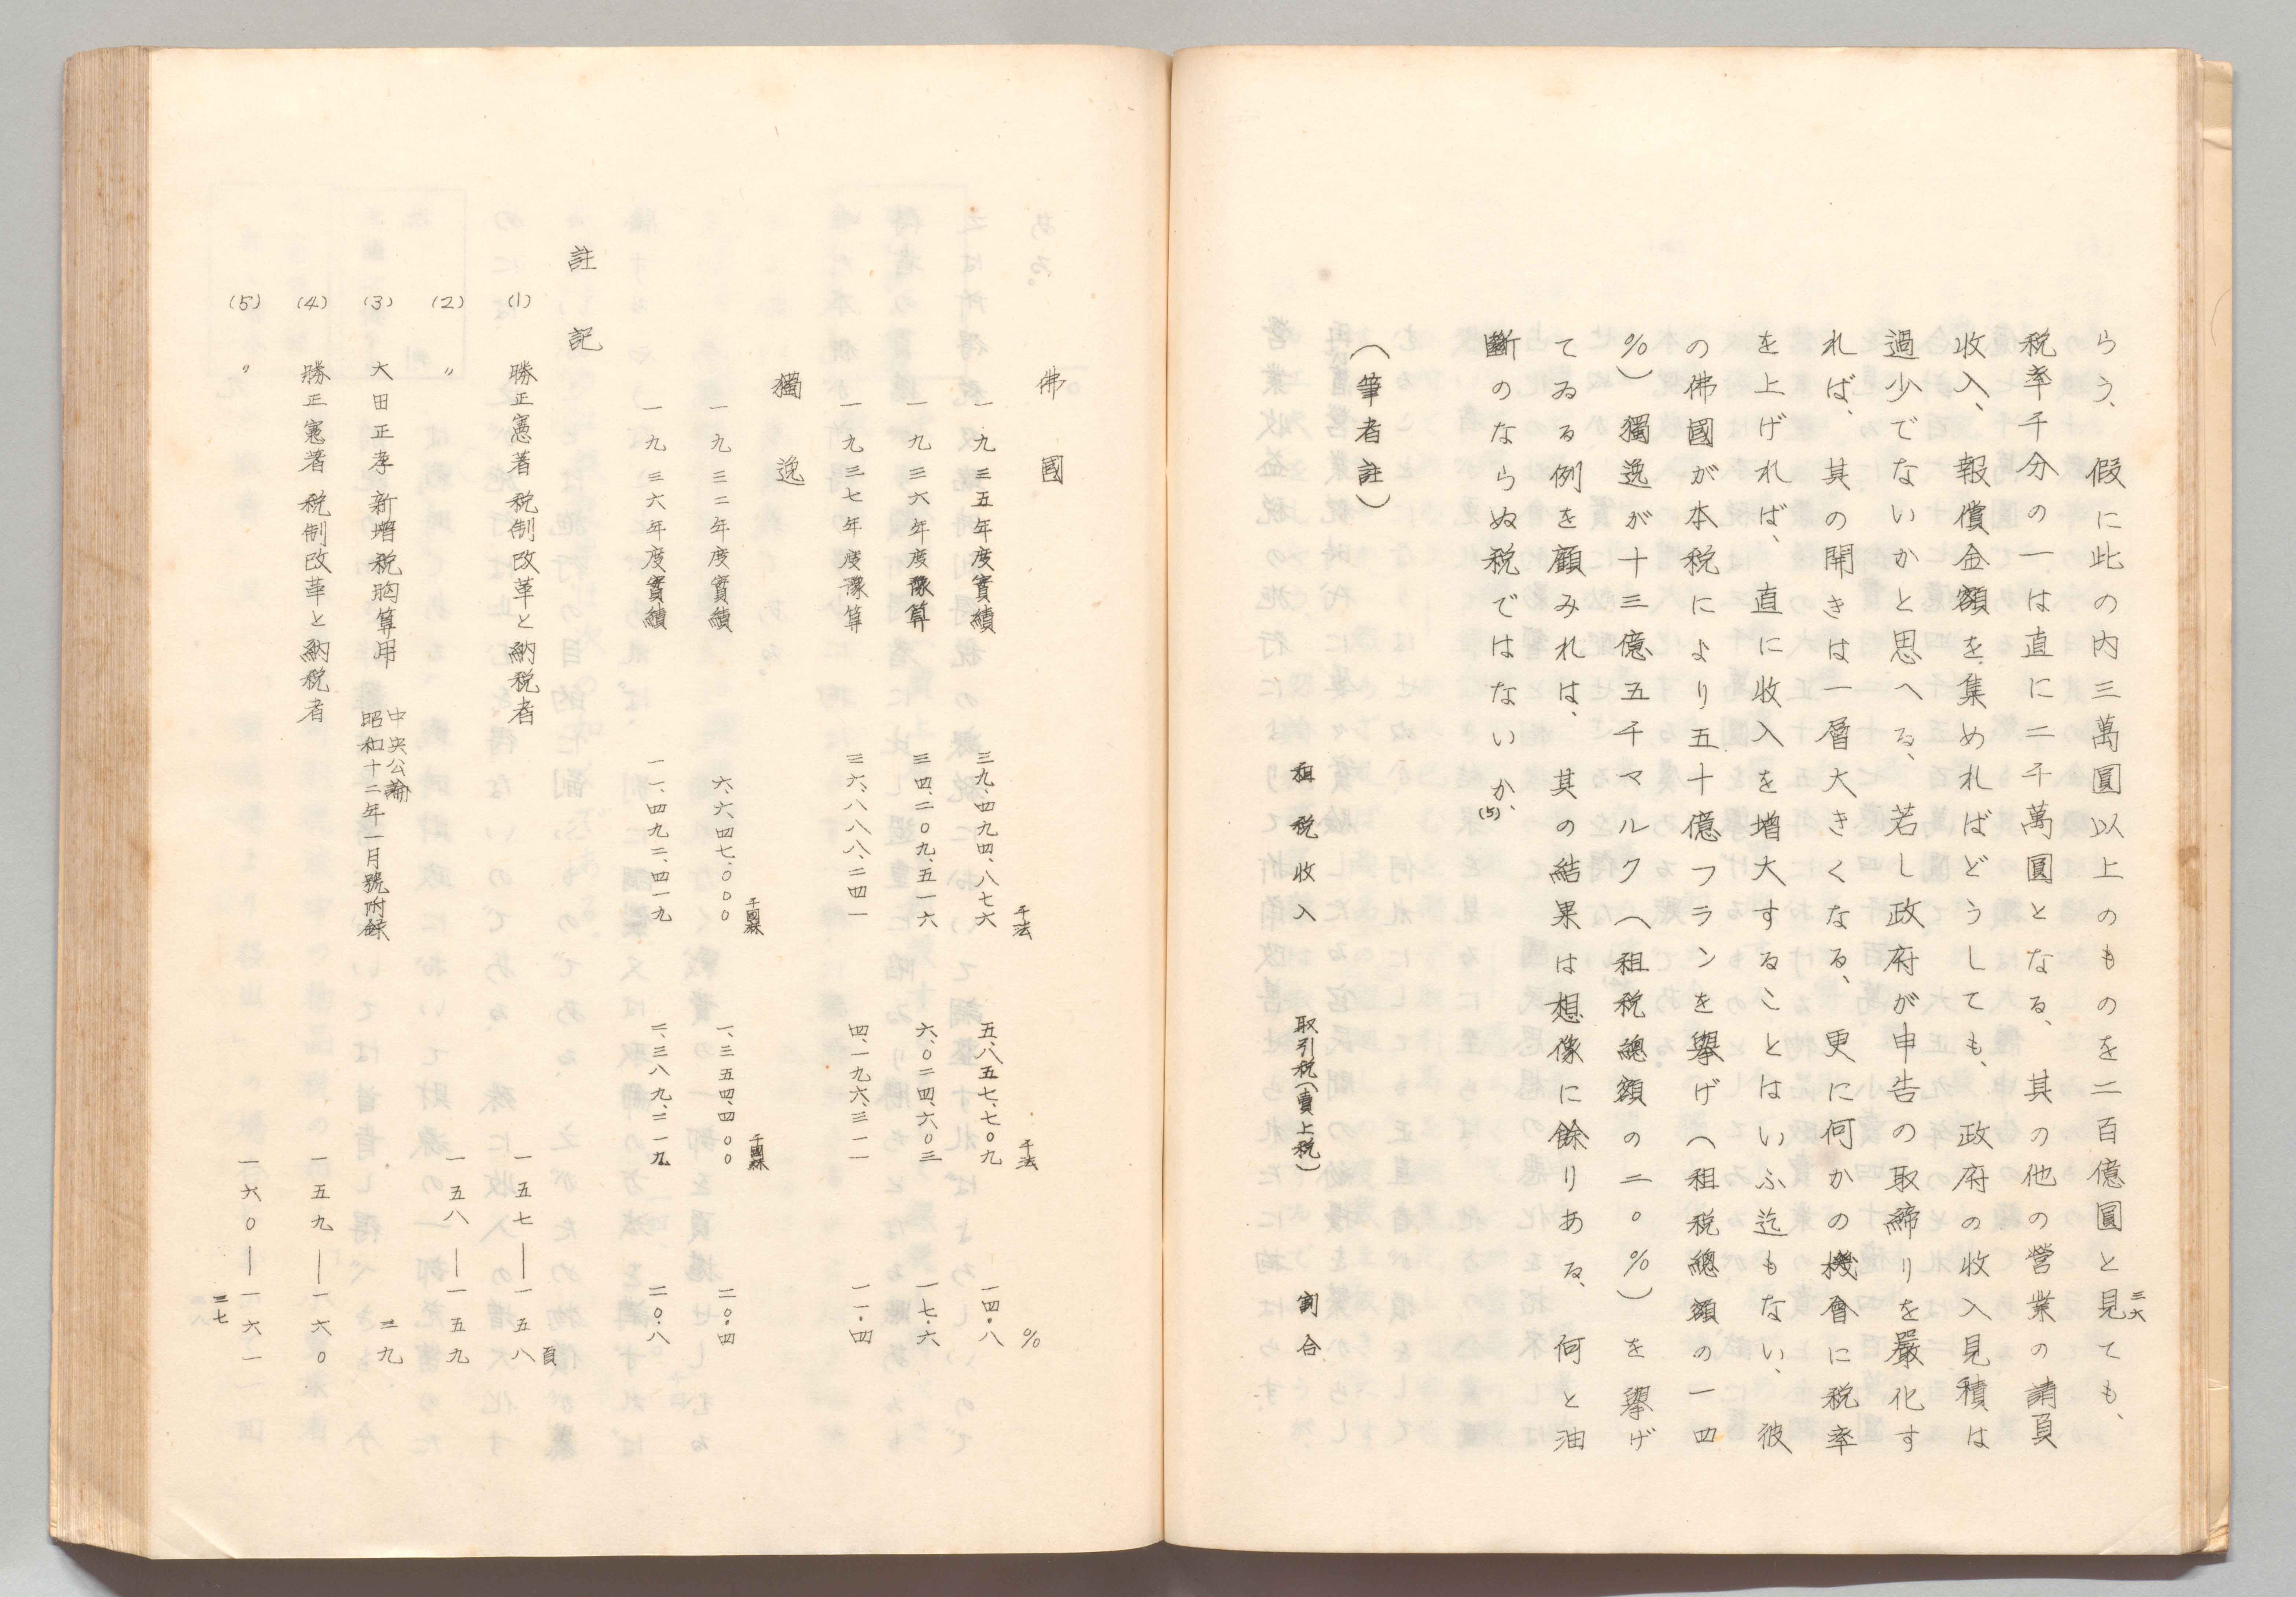 三六
らう、假に此の内三萬圓以上のものを二百億圓と見ても、
税率千分の一は直に二千萬圓となる、其の他の營業の請負
收入、報償金額を集めればどうしても、政府の收入見積は
過少でないかと思へる、若し政府が申告の取締りを嚴化す
れば、其の開きは一層大きくなる、更に何かの機會に税率
を上げれば、直に收入を増大することはいふ迄もない、彼
の佛國が本税により五十億フランを擧げ(租税總額の一四
%)獨逸が十三億五千マルク(租税總額の二〇%)を擧げ
てゐる例を顧みれは、其の結果は想像に餘りある、何と油
斷のならぬ税ではないか、(5)
(筆者註)
租税收入 取引税(賣上税) 割合
佛國
千法 千法 %
一九三五年度實績 三九、四九四、八七六 五、八五七、七〇九 一四・八
一九三六年度豫算 三四、二〇九、五一六 六、〇二四、六〇三 一七・六
一九三七年度豫算 三六、八八八、二四一 四、一九六、三一一 一一・四
獨逸
千國麻 千國麻
一九三二年度實績 六、六四七、〇〇〇 一、三五四、四〇〇 二〇・四
一九三六年度實績 一一、四九二、四一九 二、三八九、二一九 二〇・八
註記
(1) 勝正憲著 税制改革と納税者 一五七―一五八頁
(2) 〃 一五八―一五九
(3) 大田正孝 新増税胸算用 中央公論 昭和十二年一月號附録 二九
(4) 勝正憲著 税制改革と納税者 一五九―一六〇
(5) 〃 一六〇―一六一
三七